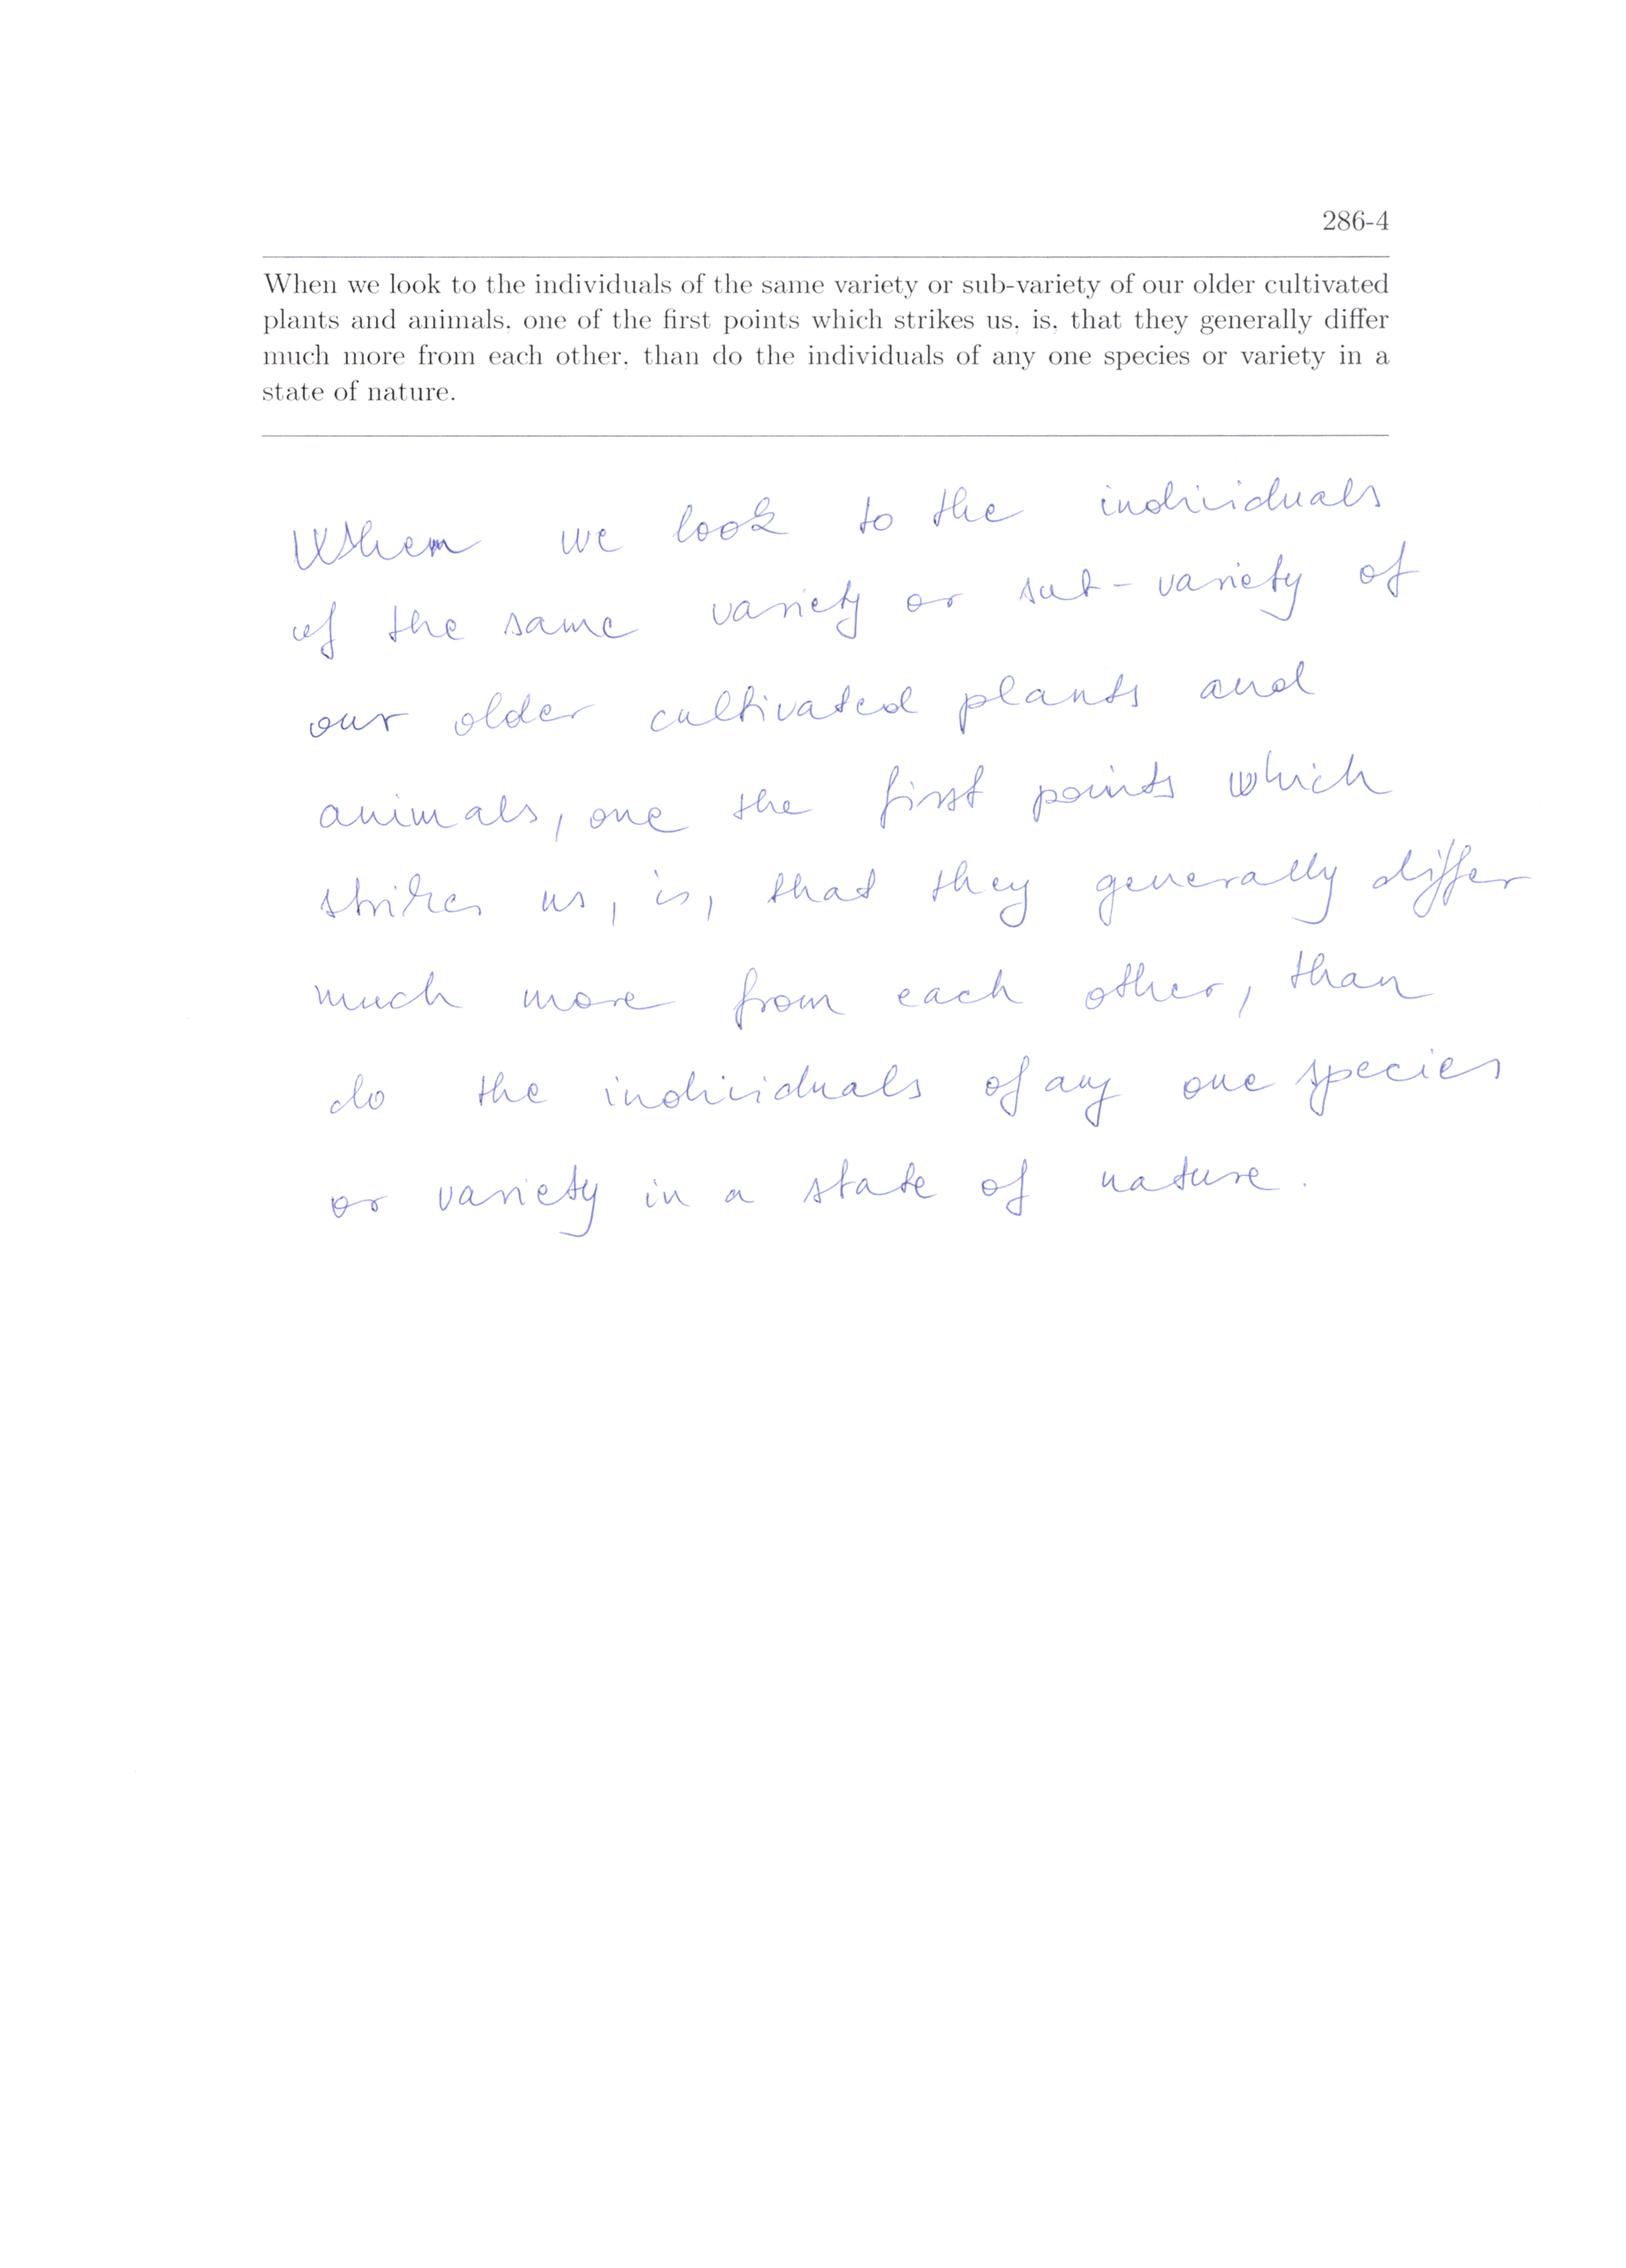 286-4
When we look to the individuals of the same variety or sub-variety of our older cultivated
plants and animals, one of the first points which strikes us, is, that they generally differ
much more from each other, than do the individuals of any one species or variety in a
state of nature.
When we look to the individuals
of the same variety or sub-variety of
our older cultivated plants and
animals, one the first points which
strikes us, is, that they generally differ
much more from each other, than
do the individuals of any one species
or variety in a state of nature.